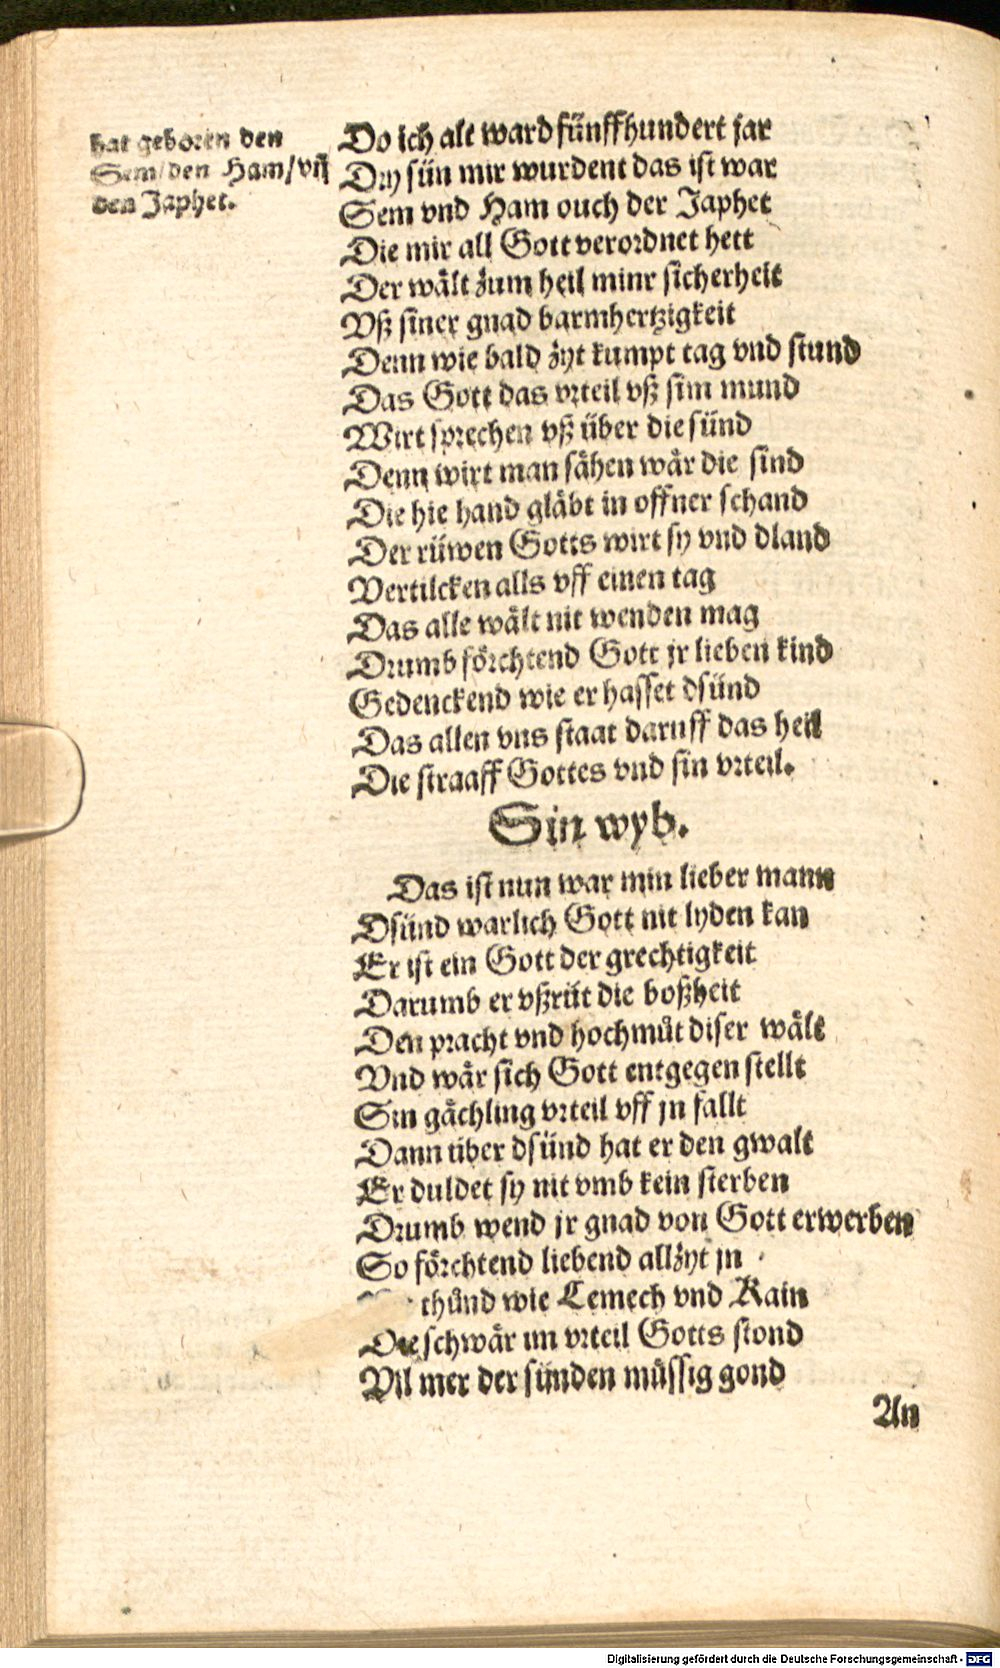 hat geboren den
Sem/den Ham/vñ
den Japhet.
Do ich alt ward fünffhundert jar
Dry sün mir wurdent das ist war
Sem vnd Ham ouch der Japhet
Die mir all Gott verordnet hett
Der wält zum heil minr sicherheit
Vß siner gnad barmhertzigkeit
Denn wie bald zyt kumpt tag vnd stund
Das Gott das vrteil vß sim mund
Wirt sprechen vß über die sünd
Denn wirt man sähen wär die sind
Die hie hand gläbt in offner schand
Der rüwen Gotts wirt sy vnd dland
Vertilcken alls vff einen tag
Das alle wält nit wenden mag
Drumb förchtend Gott jr lieben kind
Gedenckend wie er hasset dsünd
Das allen vns staat daruff das heil
Die straaff Gottes vnd sin vrteil.
Sin wyb.
Das ist nun war min lieber mann
Dsünd warlich Gott nit lyden kan
Er ist ein Gott der grechtigkeit
Darumb er vßrüt die boßheit
Den pracht vnd hochmůt diser wält
Vnd wär sich Gott entgegen stellt
Sin gächling vrteil vff jn fallt
Dann über dsünd hat er den gwalt
Er duldet sy nit vmb kein sterben
Drumb wend jr gnad von Gott erwerben
So förchtend liebend allzyt jn
thůnd wie Lemech vnd Kain
Die schwär im vrteil Gotts stond
Vil mer der sünden müssig gond
An
Digitalisierung gefördert durch die Deutsche Forschungsgemeinschaft - DFG